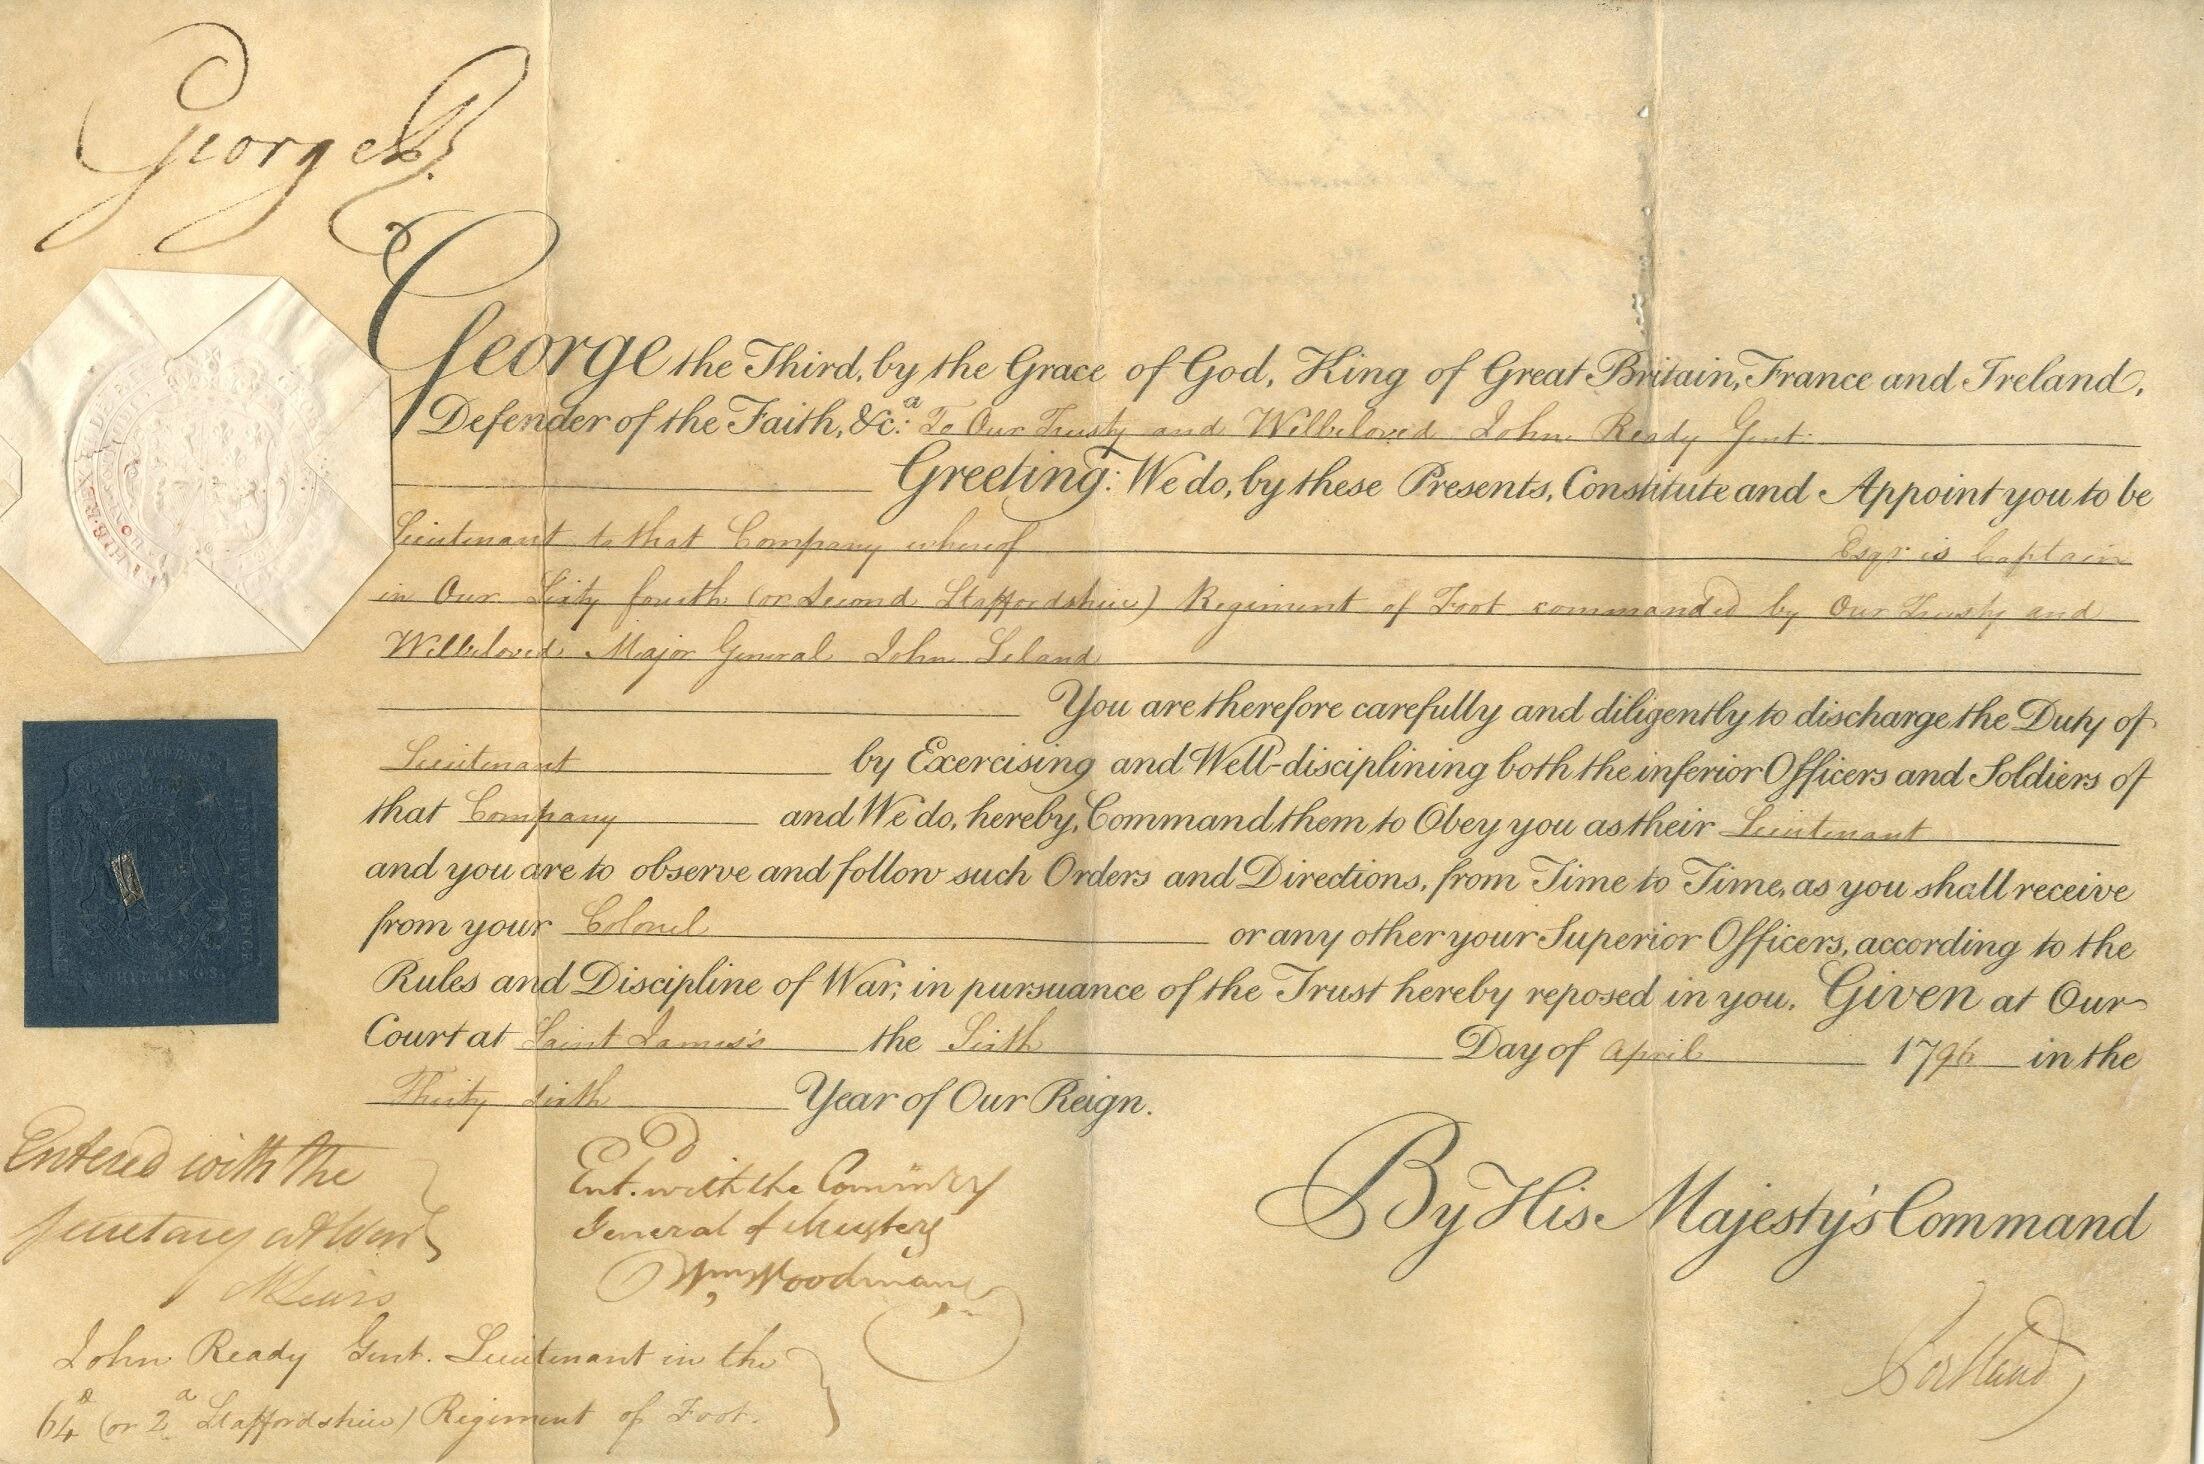 George R.
George the Third, by the Grace of God, King of Great Britain, France and Ireland,
Defender of the Faith, &c.a To Our Trusty and Welbeloved John Ready Gent.
Greeting: We do, by these Presents, Constitute and Appoint you to be
Lieutenant to that Company whereof Esqr is Captain
in Our Sixty fourth (or Second Staffordshire) Regiment of Foot commanded by Our Trusty and
Welbeloved Major General John Leland
You are therefore carefully and diligently to discharge the Duty of
Lieutenant by Exercising and Well-disciplining both the inferior Officers and Soldiers of
that Company and We do, hereby, Command them to Obey you as their Lieutenant
and you are to observe and follow such Orders and Directions, from Time to Time, as you shall receive
from your Colonel or any other your Superior Officers, according to the
Rules and Discipline of War, in pursuance of the Trust hereby reposed in you. Given at Our
Court at Saint James's the Sixth Day of April 1796 in the
Thirty sixth Year of Our Reign.
By His Majesty's Command
Portland
Entered with the
Secretary at War
MLewis
Ent.d with the Commissy
General of Musters
Wm Woodman
John Ready Gent. Lieutenant in the
64th (or 2d Staffordshire) Regiment of Foot.